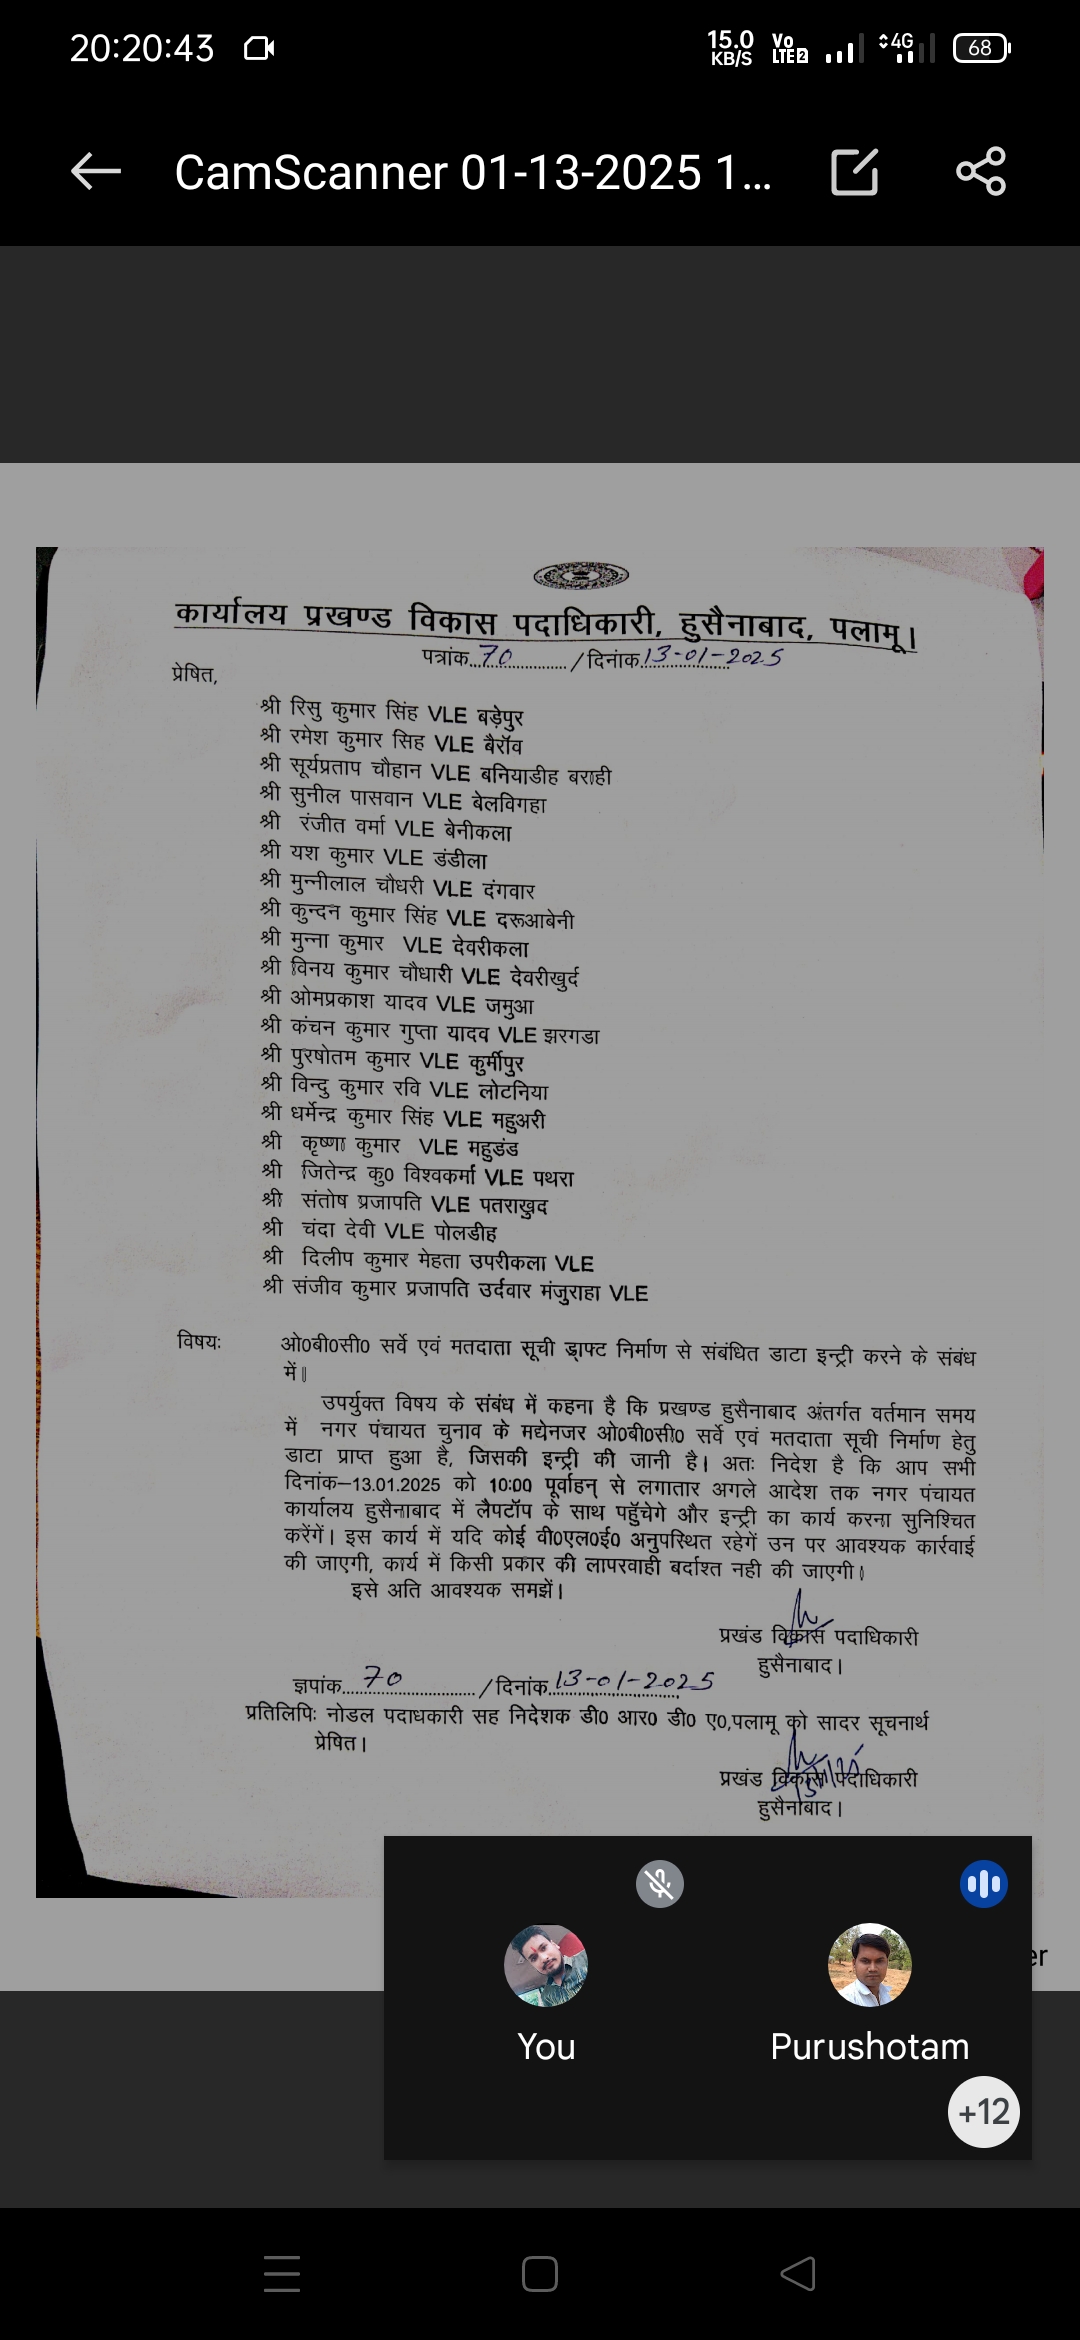 20:20:43
15.0 KB/S
Vo LTE 2
4G
68
CamScanner 01-13-2025 1...
कार्यालय प्रखण्ड विकास पदाधिकारी, हुसैनाबाद, पलामू।
पत्रांक..70............/दिनांक.13-01-2025
प्रेषित,
श्री रिसु कुमार सिंह VLE बड़ेपुर
श्री रमेश कुमार सिह VLE बैरॉव
श्री सूर्यप्रताप चौहान VLE बनियाडीह बराही
श्री सुनील पासवान VLE बेलविगहा
श्री रंजीत वर्मा VLE बेनीकला
श्री यश कुमार VLE डंडीला
श्री मुन्नीलाल चौधरी VLE दंगवार
श्री कुन्दन कुमार सिंह VLE दरूआबेनी
श्री मुन्ना कुमार VLE देवरीकला
श्री विनय कुमार चौधारी VLE देवरीखुर्द
श्री ओमप्रकाश यादव VLE जमुआ
श्री कंचन कुमार गुप्ता यादव VLE झरगडा
श्री पुरषोतम कुमार VLE कुर्मीपुर
श्री विन्दु कुमार रवि VLE लोटनिया
श्री धर्मेन्द्र कुमार सिंह VLE महुअरी
श्री कृष्णा कुमार VLE महुडंड
श्री जितेन्द्र कु0 विश्वकर्मा VLE पथरा
श्री संतोष प्रजापति VLE पतराखुद
श्री चंदा देवी VLE पोलडीह
श्री दिलीप कुमार मेहता उपरीकला VLE
श्री संजीव कुमार प्रजापति उर्दवार मंजुराहा VLE
विषयः ओ0बी0सी0 सर्वे एवं मतदाता सूची ड्राफ्ट निर्माण से संबंधित डाटा इन्ट्री करने के संबंध
में।
उपर्युक्त विषय के संबंध में कहना है कि प्रखण्ड हुसैनाबाद अंतर्गत वर्तमान समय
में नगर पंचायत चुनाव के मद्येनजर ओ0बी0सी0 सर्वे एवं मतदाता सूची निर्माण हेतु
डाटा प्राप्त हुआ है, जिसकी इन्ट्री की जानी है। अतः निदेश है कि आप सभी
दिनांक–13.01.2025 को 10:00 पूर्वाहन् से लगातार अगले आदेश तक नगर पंचायत
कार्यालय हुसैनाबाद में लैपटॉप के साथ पहुँचेगे और इन्ट्री का कार्य करना सुनिश्चित
करेंगें। इस कार्य में यदि कोई वी0एल0ई0 अनुपस्थित रहेगें उन पर आवश्यक कार्रवाई
की जाएगी, कार्य में किसी प्रकार की लापरवाही बर्दाश्त नही की जाएगी।
इसे अति आवश्यक समझें।
प्रखंड विकास पदाधिकारी
हुसैनाबाद।
ज्ञपांक...70............/दिनांक.13-01-2025
प्रतिलिपिः नोडल पदाधकारी सह निदेशक डी0 आर0 डी0 ए0,पलामू को सादर सूचनार्थ
प्रेषित।
प्रखंड विकास पदाधिकारी
हुसैनाबाद।
er
You
Purushotam
+12